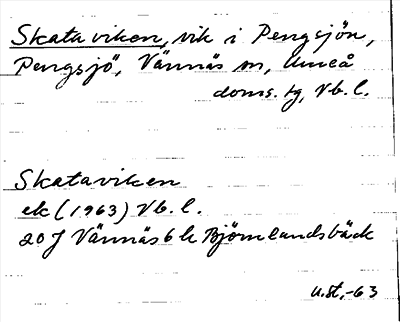 Skataviken, vik i Pengsjön,
Pengsjö, Vännäs sn, Umeå
doms. tg, Vb. l.
Skataviken
ek (1963) Vb. l.
20 J Vännäs 6 h Björnlandsbäck
U.St.-63